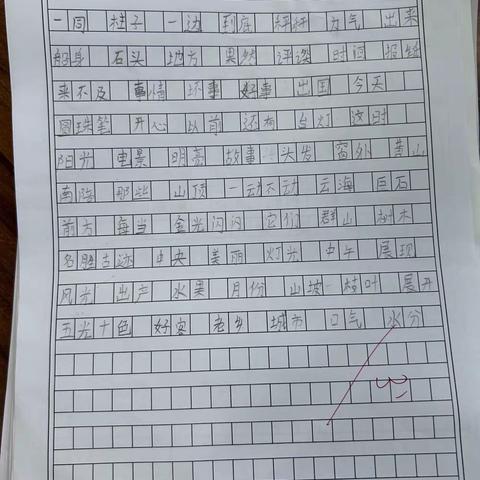 一同 柱子 一边 到底 秤杆 力气 出来
船身 石头 地方 果然 评议 时间 报纸
来不及 事情 坏事 好事 出国 今天
圆珠笔 开心 以前 还有 台灯 这时
阳光 电影 明亮 故事 头发 窗外 黄山
南陵 那些 山顶 一动不动 云海 巨石
前方 每当 金光闪闪 它们 群山 树木
名胜古迹 中央 美丽 灯光 中午 展现
风光 出产 水果 月份 山坡 枝叶 展开
五光十色 好客 老乡 城市 口气 水分